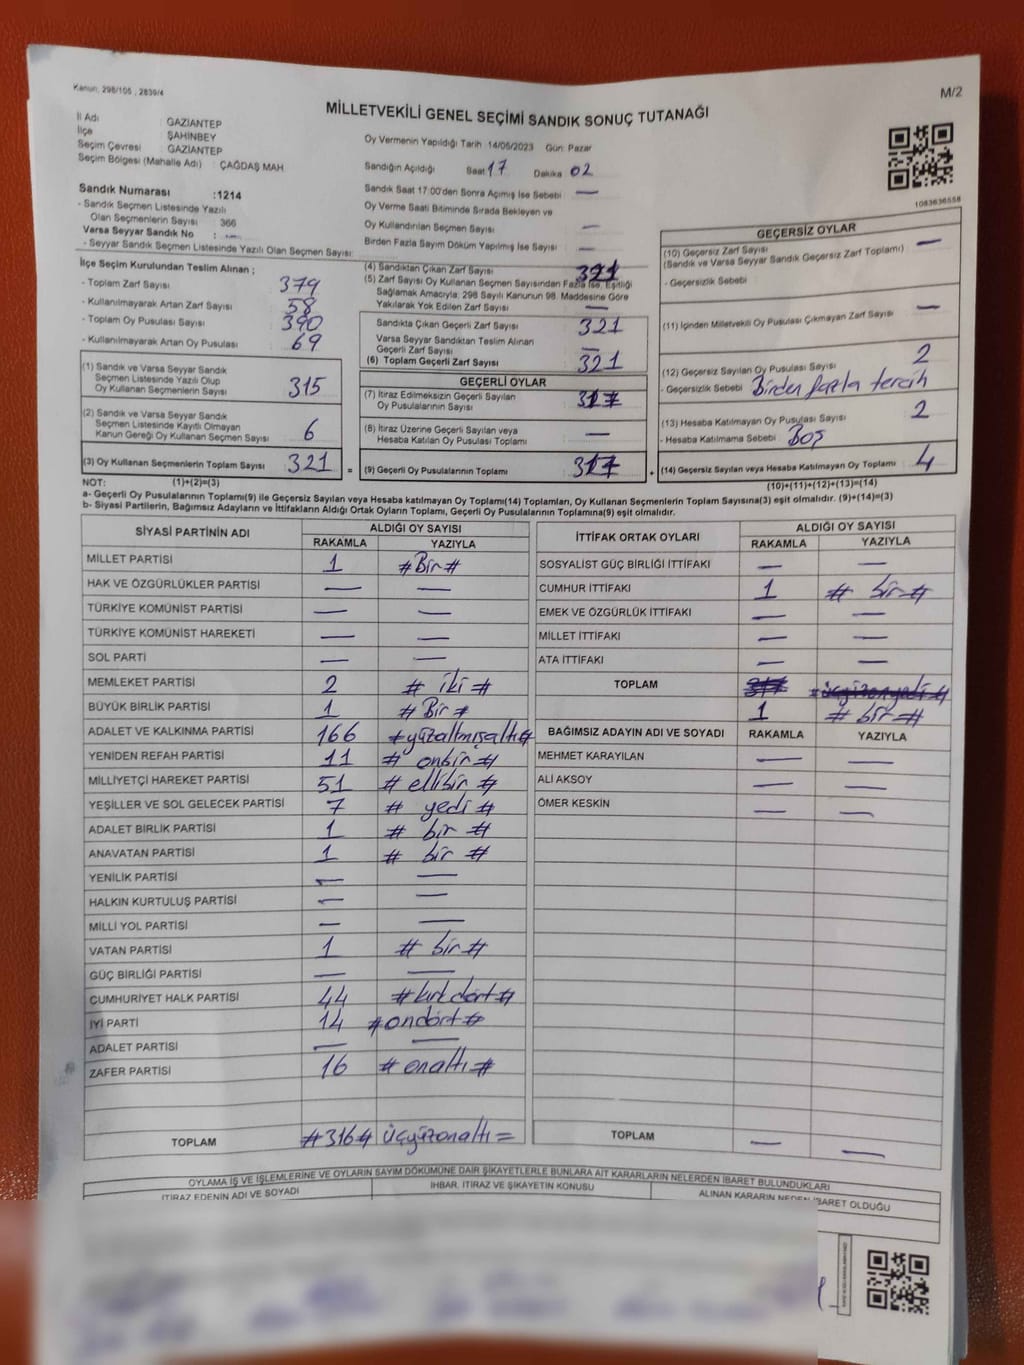 Kanun, 298/105 , 2839/4
M/2
MİLLETVEKİLİ GENEL SEÇİMİ SANDIK SONUÇ TUTANAĞI
İl Adı : GAZİANTEP
İlçe ŞAHİNBEY
Seçim Çevresi : GAZİANTEP
Seçim Bölgesi (Mahalle Adı) : ÇAĞDAŞ MAH
Sandık Numarası :1214
- Sandık Seçmen Listesinde Yazılı
Olan Seçmenlerin Sayısı : 366
Varsa Seyyar Sandık No : -
- Seyyar Sandık Seçmen Listesinde Yazılı Olan Seçmen Sayısı:
Oy Vermenin Yapıldığı Tarih 14/05/2023 Gün: Pazar
Sandığın Açıldığı Saat 17 Dakika 02
Sandık Saat 17:00'den Sonra Açımış İse Sebebi —
Oy Verme Saati Bitiminde Sırada Bekleyen ve
Oy Kullandırılan Seçmen Sayısı —
Birden Fazla Sayım Döküm Yapılmış İse Sayısı —
1083636558
İlçe Seçim Kurulundan Teslim Alınan ;
- Toplam Zarf Sayısı 379
- Kullanılmayarak Artan Zarf Sayısı 58
- Toplam Oy Pusulası Sayısı 390
- Kullanılmayarak Artan Oy Pusulası 69
(1) Sandık ve Varsa Seyyar Sandık
Seçmen Listesinde Yazılı Olup
Oy Kullanan Seçmenlerin Sayısı 315
(2) Sandık ve Varsa Seyyar Sandık
Seçmen Listesinde Kayıtlı Olmayan
Kanun Gereği Oy Kullanan Seçmen Sayısı 6
(3) Oy Kullanan Seçmenlerin Toplam Sayısı 321 =
(4) Sandıktan Çıkan Zarf Sayısı 321
(5) Zarf Sayısı Oy Kullanan Seçmen Sayısından Fazla İse, Eşitliği
Sağlamak Amacıyla; 298 Sayılı Kanunun 98. Maddesine Göre
Yakılarak Yok Edilen Zarf Sayısı —
Sandıkta Çıkan Geçerli Zarf Sayısı 321
Varsa Seyyar Sandıktan Teslim Alınan
Geçerli Zarf Sayısı —
(6) Toplam Geçerli Zarf Sayısı 321
GEÇERLİ OYLAR
(7) İtiraz Edilmeksizin Geçerli Sayılan
Oy Pusulalarının Sayısı 317
(8) İtiraz Üzerine Geçerli Sayılan veya
Hesaba Katılan Oy Pusulası Toplamı —
(9) Geçerli Oy Pusulalarının Toplamı 317 +
GEÇERSİZ OYLAR
(10) Geçersiz Zarf Sayısı —
(Sandık ve Varsa Seyyar Sandık Geçersiz Zarf Toplamı)
- Geçersizlik Sebebi
(11) İçinden Milletvekili Oy Pusulası Çıkmayan Zarf Sayısı —
(12) Geçersiz Sayılan Oy Pusulası Sayısı 2
- Geçersizlik Sebebi Birden fazla tercih
(13) Hesaba Katılmayan Oy Pusulası Sayısı 2
- Hesaba Katılmama Sebebi Boş
(14) Geçersiz Sayılan veya Hesaba Katılmayan Oy Toplamı 4
NOT: (1)+(2)=(3) (10)+(11)+(12)+(13)=(14)
a- Geçerli Oy Pusulalarının Toplamı(9) ile Geçersiz Sayılan veya Hesaba katılmayan Oy Toplamı(14) Toplamları, Oy Kullanan Seçmenlerin Toplam Sayısına(3) eşit olmalıdır. (9)+(14)=(3)
b- Siyasi Partilerin, Bağımsız Adayların ve İttifakların Aldığı Ortak Oyların Toplamı, Geçerli Oy Pusulalarının Toplamına(9) eşit olmalıdır.
SİYASİ PARTİNİN ADI ALDIĞI OY SAYISI
RAKAMLA YAZIYLA
MİLLET PARTİSİ 1 #Bir#
HAK VE ÖZGÜRLÜKLER PARTİSİ — —
TÜRKİYE KOMÜNİST PARTİSİ — —
TÜRKİYE KOMÜNİST HAREKETİ — —
SOL PARTİ — —
MEMLEKET PARTİSİ 2 # iki #
BÜYÜK BİRLİK PARTİSİ 1 # Bir #
ADALET VE KALKINMA PARTİSİ 166 #yüzaltmışaltı#
YENİDEN REFAH PARTİSİ 11 # onbir #
MİLLİYETÇİ HAREKET PARTİSİ 51 # ellibir #
YEŞİLLER VE SOL GELECEK PARTİSİ 7 # yedi #
ADALET BİRLİK PARTİSİ 1 # bir #
ANAVATAN PARTİSİ 1 # bir #
YENİLİK PARTİSİ — —
HALKIN KURTULUŞ PARTİSİ — —
MİLLİ YOL PARTİSİ — —
VATAN PARTİSİ 1 # bir #
GÜÇ BİRLİĞİ PARTİSİ — —
CUMHURİYET HALK PARTİSİ 44 #kırkdört#
İYİ PARTİ 14 #ondört#
ADALET PARTİSİ — —
ZAFER PARTİSİ 16 #onaltı #
TOPLAM #316# üçyüzonaltı=
İTTİFAK ORTAK OYLARI ALDIĞI OY SAYISI
RAKAMLA YAZIYLA
SOSYALİST GÜÇ BİRLİĞİ İTTİFAKI — —
CUMHUR İTTİFAKI 1 # bir #
EMEK VE ÖZGÜRLÜK İTTİFAKI — —
MİLLET İTTİFAKI — —
ATA İTTİFAKI — —
TOPLAM 317 #üçyüzonyedi#
1 # bir #
BAĞIMSIZ ADAYIN ADI VE SOYADI RAKAMLA YAZIYLA
MEHMET KARAYILAN — —
ALİ AKSOY — —
ÖMER KESKİN — —
TOPLAM — —
OYLAMA İŞ VE İŞLEMLERİNE VE OYLARIN SAYIM DÖKÜMÜNE DAİR ŞİKAYETLERLE BUNLARA AİT KARARLARIN NELERDEN İBARET BULUNDUKLARI
İTİRAZ EDENİN ADI VE SOYADI İHBAR, İTİRAZ VE ŞİKAYETİN KONUSU ALINAN KARARIN NEDEN İBARET OLDUĞU